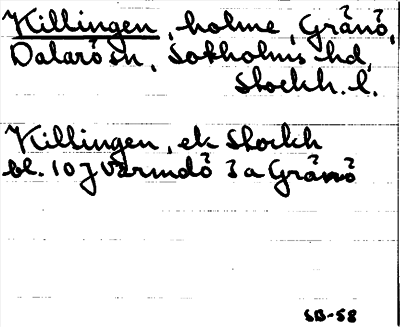 Killingen, holme, Grånö,
Dalarö sn, Sotholms hd,
Stockh. l.
Killingen, ek Stockh
bl. 10 J Värmdö 3 a Grånö
SB-58